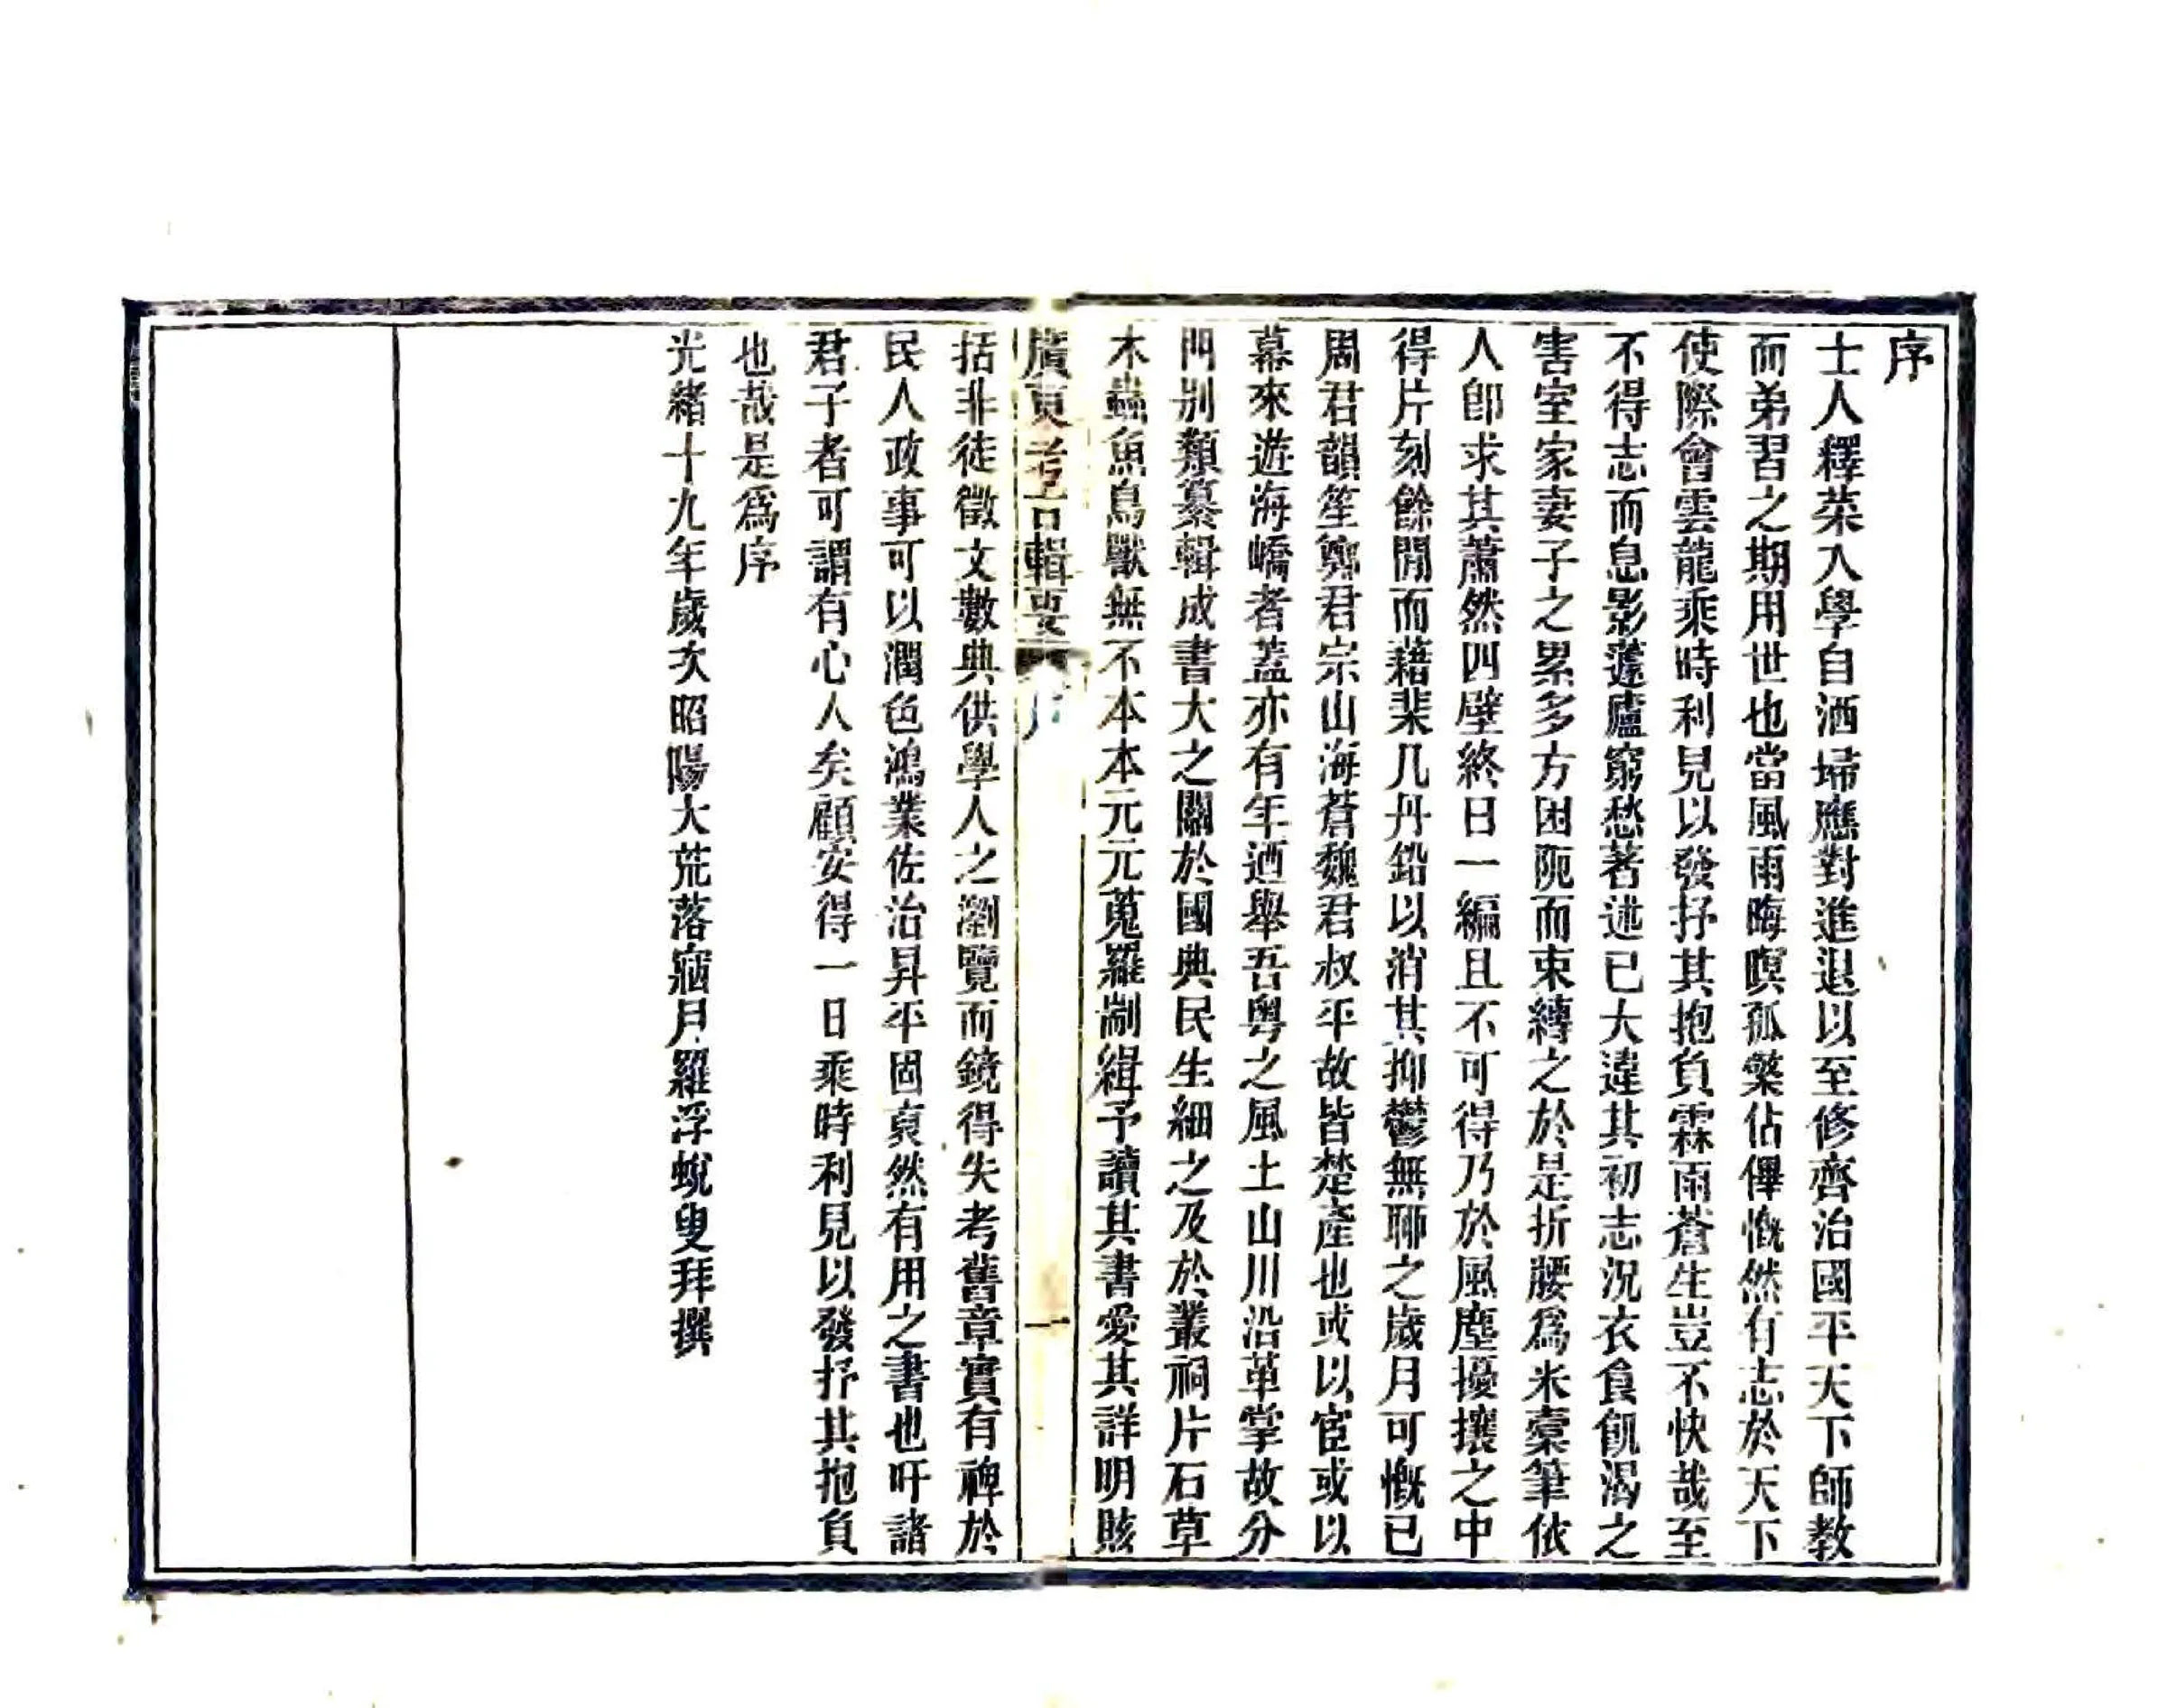 序
士人釋菜入學自洒埽應對進退以至修齊治國平天下師教
而弟習之期用世也當風雨晦暝孤檠佔僤慨然有志於天下
使際會雲龍乘時利見以發抒其抱負霖雨蒼生豈不快哉至
不得志而息影蘧廬窮愁著述已大違其初志況衣食飢渴之
害室家妻子之累多方困阨而束縛之於是折腰爲米槖筆依
人卽求其蕭然四壁終日一編且不可得乃於風塵擾攘之中
得片刻餘閒而藉棐几丹鉛以消其抑鬱無聊之歲月可慨已
周君韻笙鄭君宗山海蒼魏君叔平故皆楚產也或以宦或以
幕來遊海嶠者蓋亦有年迺舉吾粵之風土山川沿革掌故分
門别類纂輯成書大之關於國典民生細之及於叢祠片石草
木蟲魚鳥獸無不本本元元蒐羅剬緝予讀其書愛其詳明賅
廣東考古輯要 序 一
括非徒徵文數典供學人之瀏覽而鏡得失考舊章實有裨於
民人政事可以潤色鴻業佐治昇平固裒然有用之書也吁諸
君子者可謂有心人矣顧安得一日乘時利見以發抒其抱負
也哉是爲序
光緒十九年歲次昭陽大荒落寎月羅浮蛻叟拜撰